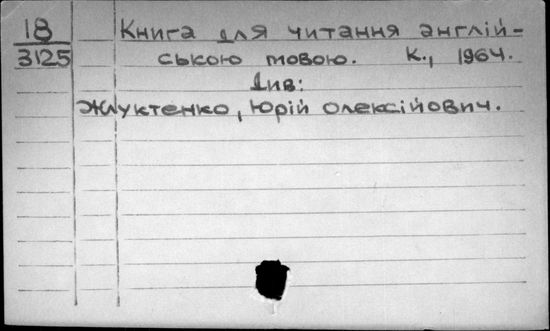 18
3125
Книга для читання англій-
ською мовою. К., 1964.
Див:
Жлуктенко, Юрій Олексійович.